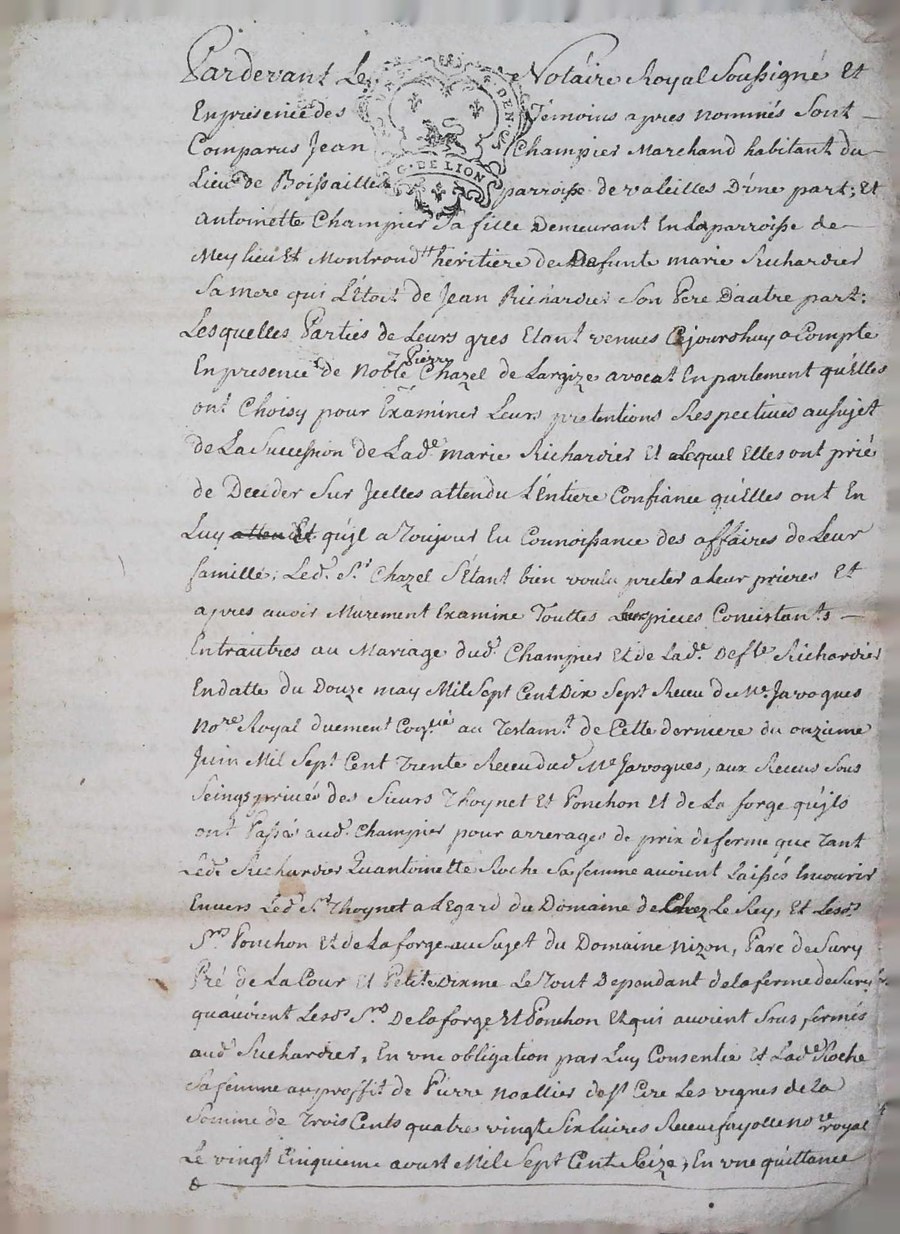 Pardevant Le Notaire Royal Soussigné Et
En presence des Temoins apres nommés Sont
Comparus Jean Champier Marchand habitant du
DEN
G. DE LION
Lieu de Boissailles parroisse de valeilles D'une part; Et
Antoinette Champier Sa fille Demeurant En La parroisse de
Meylieu Et Montroud heritiere de Defunte marie Richardier
Sa mere qui L'étoit de Jean Richardier Son Pere D'autre part;
Lesquelles Parties de Leurs gres Etant venues Cejourdhuy a Compte
Pierre
En presence de Noble Chazel de avocat En parlement qu'Elles
ont Choisy pour Examiner Leurs pretentions Respectives au sujet
de La Succession de Lade marie Richardier Et a Lequel Elles ont prié
de Decider Sur Jcelles attendu L'Entiere Confiance qu'Elles ont En
Luy qu'jl a Toujour Eu Connoissance des affaires de Leur
famille; Led. Sr. Chazel S'Etant bien voulu preter a Leur prieres Et
apres avoir Murement Examiné Touttes Les pieces Concistants
Entr'autres au Mariage dud. Champier Et de Lade. Defte. Richardier
En datte du Douze may Mil Sept Cent Dix Sept Receu de Me. Javoques
Nore. Royal duement au Testamt. de Cette derniere du onzieme
Juin Mil Sept Cent Trente Receu dud. Me Javoques, aux Receus Sous
Seings privés des Sieurs Thoynet Et Ponchon Et de La forge qu'jls
ont Passés aud. Champier pour arrerages de prix de ferme que Tant
Led. Richardier Qu'antoinette Roche Sa femme avoient Laissés Encourir
Envers Led. Sr. Thoynet a L'Egard du Domaine de Chez Le Rey, Et Lesds
Srs Ponchon Et de La forge au Sujet du Domaine Nizon, Parc de Sury
Pré de La Cour Et Petite Dixme Le Tout Dependant de la ferme de Sury
qu'avoient Lesds Srs De la forge Et Ponchon Et qui avoient Sous fermés
aud. Richardier, En une obligation par Luy Consentie Et Lade. Roche
Sa femme au proffit de Pierre Noallier de St Cire Les vignes de La
Somme de Trois Cents quatre vingt Six Livres Receue fayolle Nore royal
Le vingt Cinquieme aoust Mil Sept Cent Seize, En une quittance